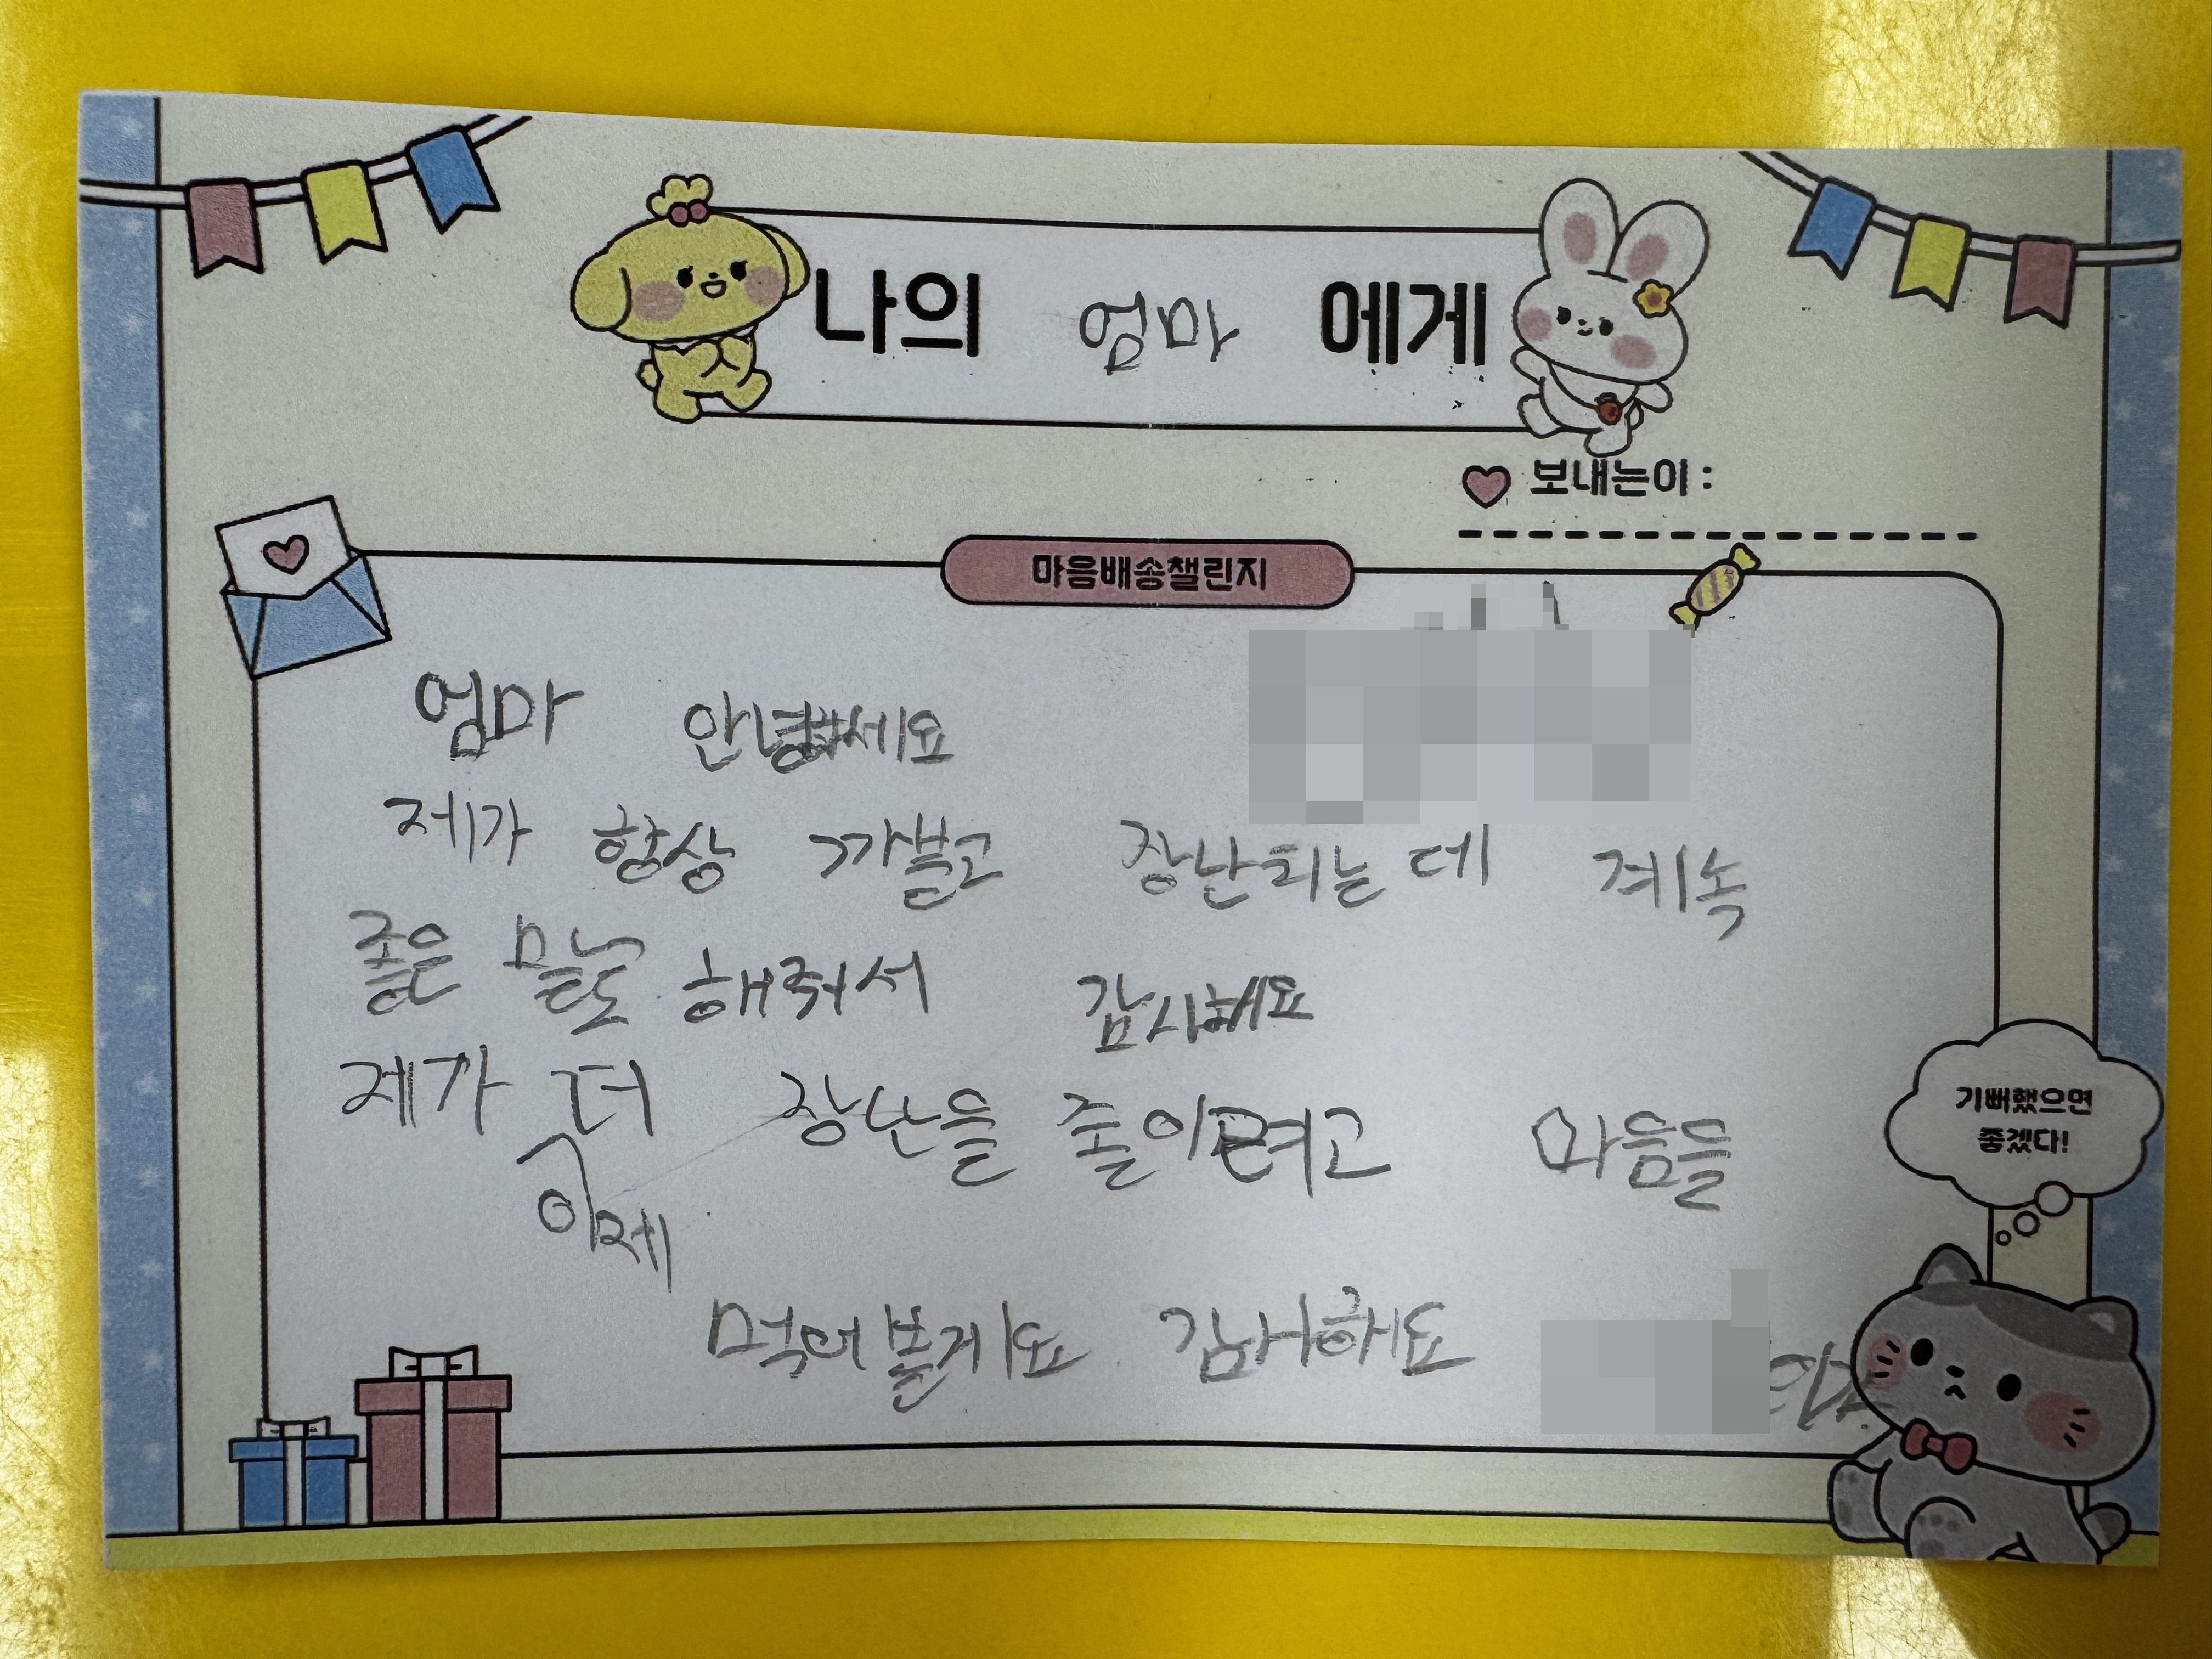 나의 엄마 에게
보내는이 :
마음배송챌린지
엄마 안녕하세요
제가 항상 까불고 장난되는데 계속
좋은 말도 해줘서 감사해요
제가 더 장난을 줄이려고 마음을
이제
먹어볼게요 감사해요
기뻐했으면
좋겠다!